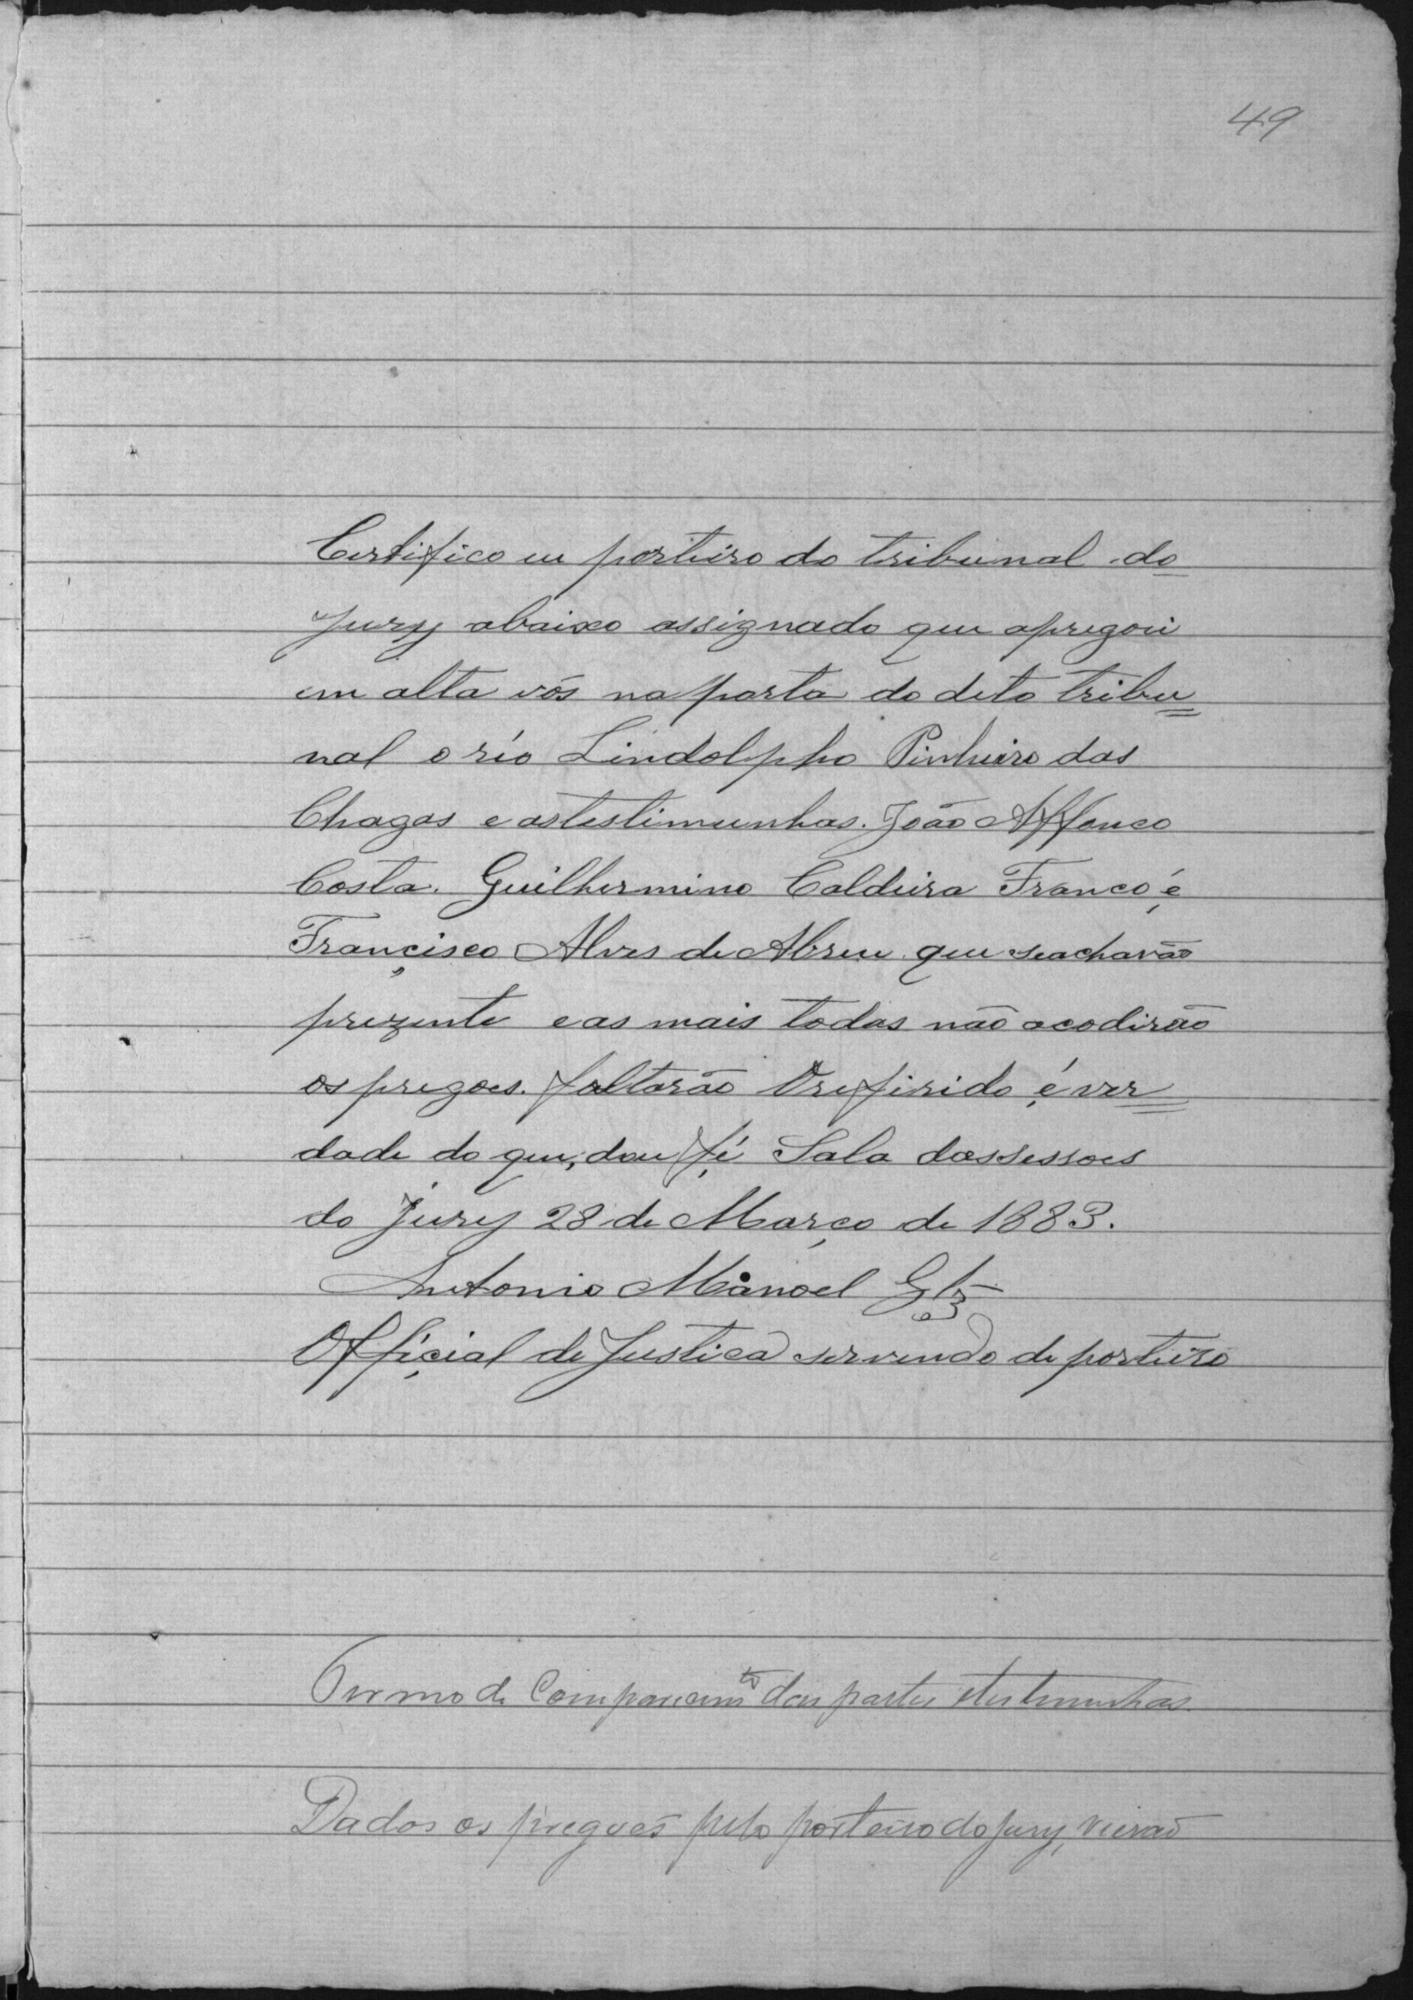 49
Certifico eu porteiro do tribunal do
Jury abaixo assignado que apregoei
em alta vós na porta do dito tribu
nal o réo Lindolpho Pinheiro das
Chagas e as testimunhas. João Affonco
Costa. Guilhermino Caldeira Franco, é
Françisco Alves de Abreu que se achavão
prezente e as mais todas não acodirão
os pregoes. faltarão O refirido é ver
dade do que, dou fé Sala das sessoes
do Jury 28 de Março de 1883.
Antonio Manoel Glz
Offiçial de Justica servendo de porteiro
Termo de Comparecim to das partes e testemunhas.
Dados os pregoes pelo porteiro do Jury, vierao